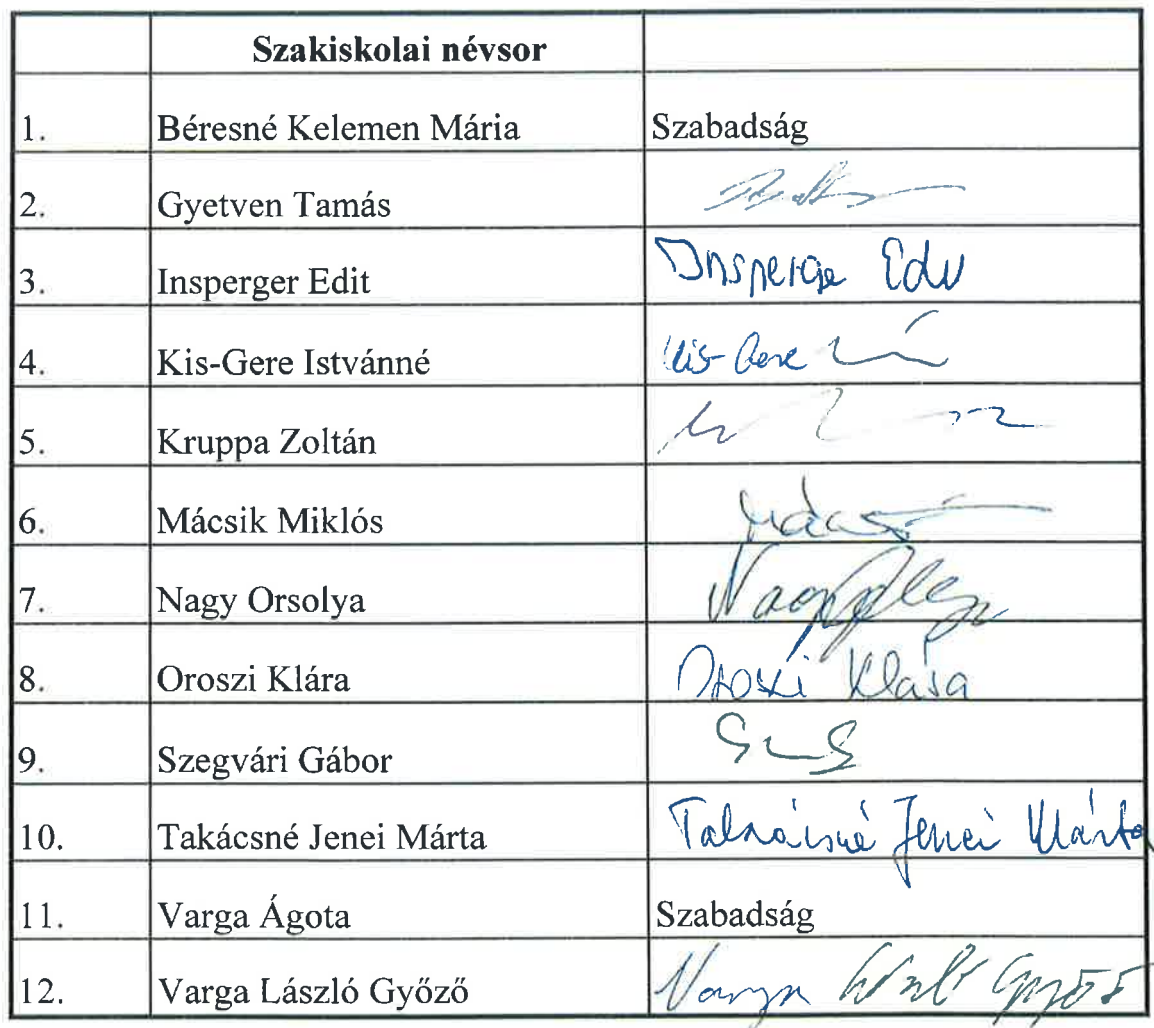 Szakiskolai névsor
1. Béresné Kelemen Mária Szabadság
2. Gyetven Tamás
3. Insperger Edit Insperger Edit
4. Kis-Gere Istvánné Kis-Gere
5. Kruppa Zoltán
6. Mácsik Miklós
7. Nagy Orsolya Nagy
8. Oroszi Klára Oroszi Klára
9. Szegvári Gábor
10. Takácsné Jenei Márta Takácsné Jenei Márta
11. Varga Ágota Szabadság
12. Varga László Győző Varga László Győző